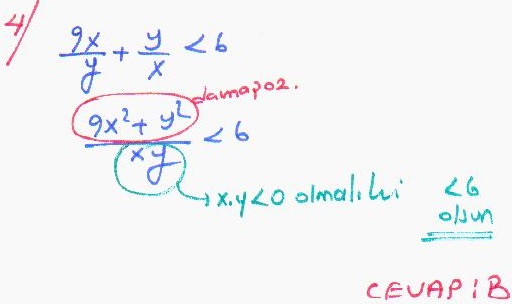 4/
9x/y + y/x < 6
daima poz.
9x² + y² / xy < 6
x.y<0 olmalı ki <6
olsun
CEVAP: B